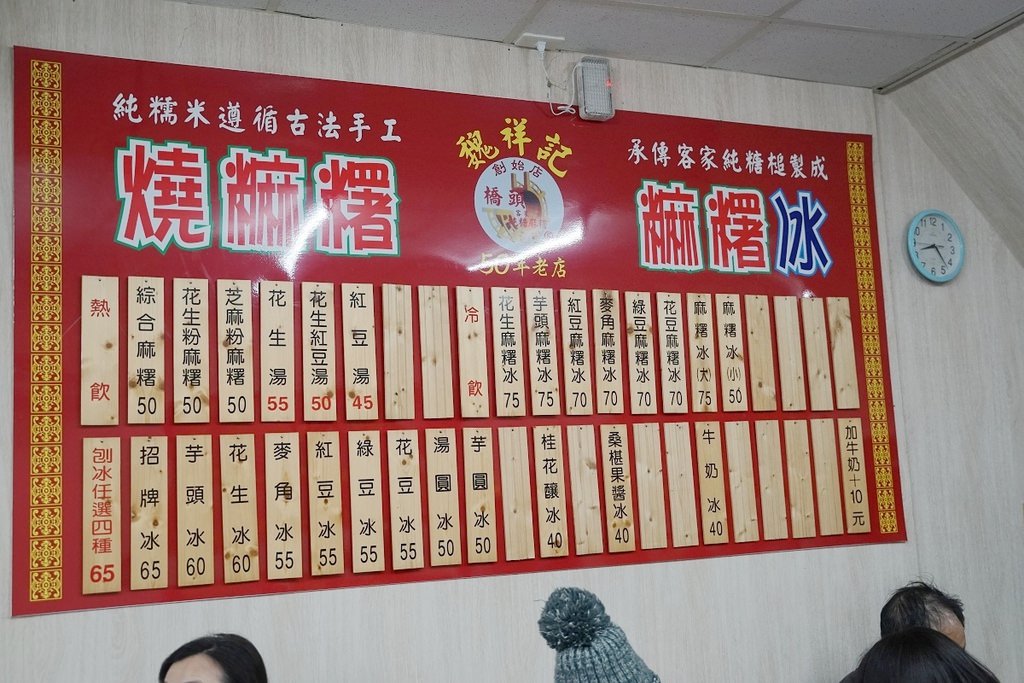 純糯米遵循古法手工
燒麻糬
魏祥記
創始店
橋頭
50年老店
承傳客家純糖槌製成
麻糬冰
熱飲
綜合麻糬 50
花生粉麻糬 50
芝麻粉麻糬 50
花生湯 55
花生紅豆湯 50
紅豆湯 45
冷飲
花生麻糬冰 75
芋頭麻糬冰 75
紅豆麻糬冰 70
麥角麻糬冰 70
綠豆麻糬冰 70
花豆麻糬冰 70
麻糬冰(大) 75
麻糬冰(小) 50
刨冰任選四種 65
招牌冰 65
芋頭冰 60
花生冰 60
麥角冰 55
紅豆冰 55
綠豆冰 55
花豆冰 55
湯圓冰 50
芋圓冰 50
桂花釀冰 40
桑椹果醬冰 40
牛奶冰 40
加牛奶+10元
12
1
2
3
4
5
6
7
8
9
10
11